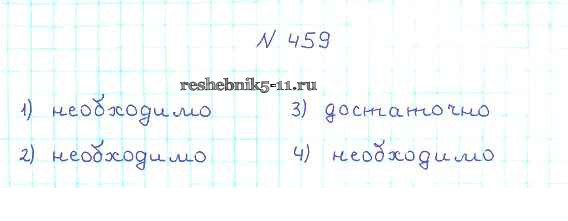 N 459
reshebnik5-11.ru
1) необходимо
2) необходимо
3) достаточно
4) необходимо